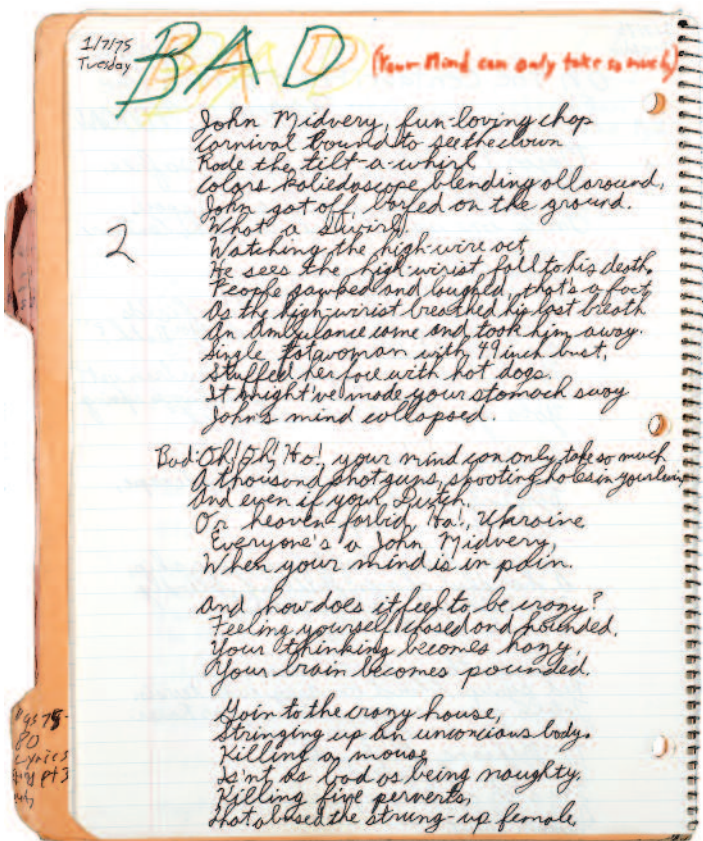 1/7/75
Tuesday
BAD
(Your Mind can only take so much)
John Midvery, fun-loving chap
Carnival bound to see the clown
Rode the tilt-a-whirl
Colors kaliedascope blending all around,
John got off, barfed on the ground.
What a swirl.
2
Watching the high-wire act,
He sees the high-wirist fall to his death.
People gawked and laughed, that's a fact
As the high-wirist breathed his last breath
An Ambulance came and took him away.
Single fat woman with 49 inch bust,
Stuffed her face with hot dogs.
It might've made your stomach sway
John's mind collapsed.
Bad: Oh! Oh! Ho!, your mind can only take so much
A thousand shotguns, shooting holes in your
And even if your Dutch.
Or heaven forbid, Ha!, Ukraine
Everyone's a John Midvery,
When your mind is in pain.
And how does it feel to be crazy?
Feeling yourself chased and hounded.
Your thinking becomes hazy,
Your brain becomes pounded.
Goin to the crazy house,
Stringing up an unconcious body.
Killing a mouse
Is'nt as bad as being naughty.
Killing five perverts,
That abused the strung-up female,
Pgs 78-
80
Lyrics
pt 3